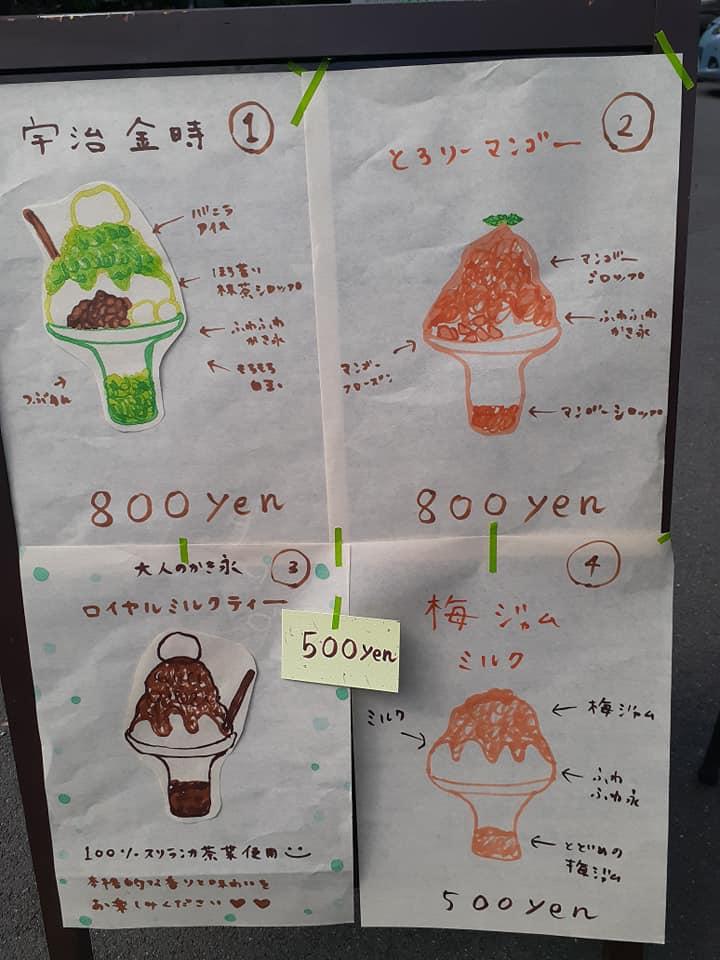 宇治金時 ①
バニラ
アイス
ほろ苦い
抹茶シロップ
ふわふわ
かき氷
もちもち
白玉
つぶあん
800yen
②
とろリーマンゴー
マンゴー
シロップ
ふわふわ
かき氷
マンゴー
フローズン
マンゴーシロップ
800yen
大人のかき氷 ③
ロイヤルミルクティー
500yen
100%スリランカ茶葉使用
本格的な香りと味わいを
お楽しみください♥♥
④
梅ジャム
ミルク
ミルク
梅ジャム
ふわ
ふわ氷
とどめの
梅ジャム
500yen